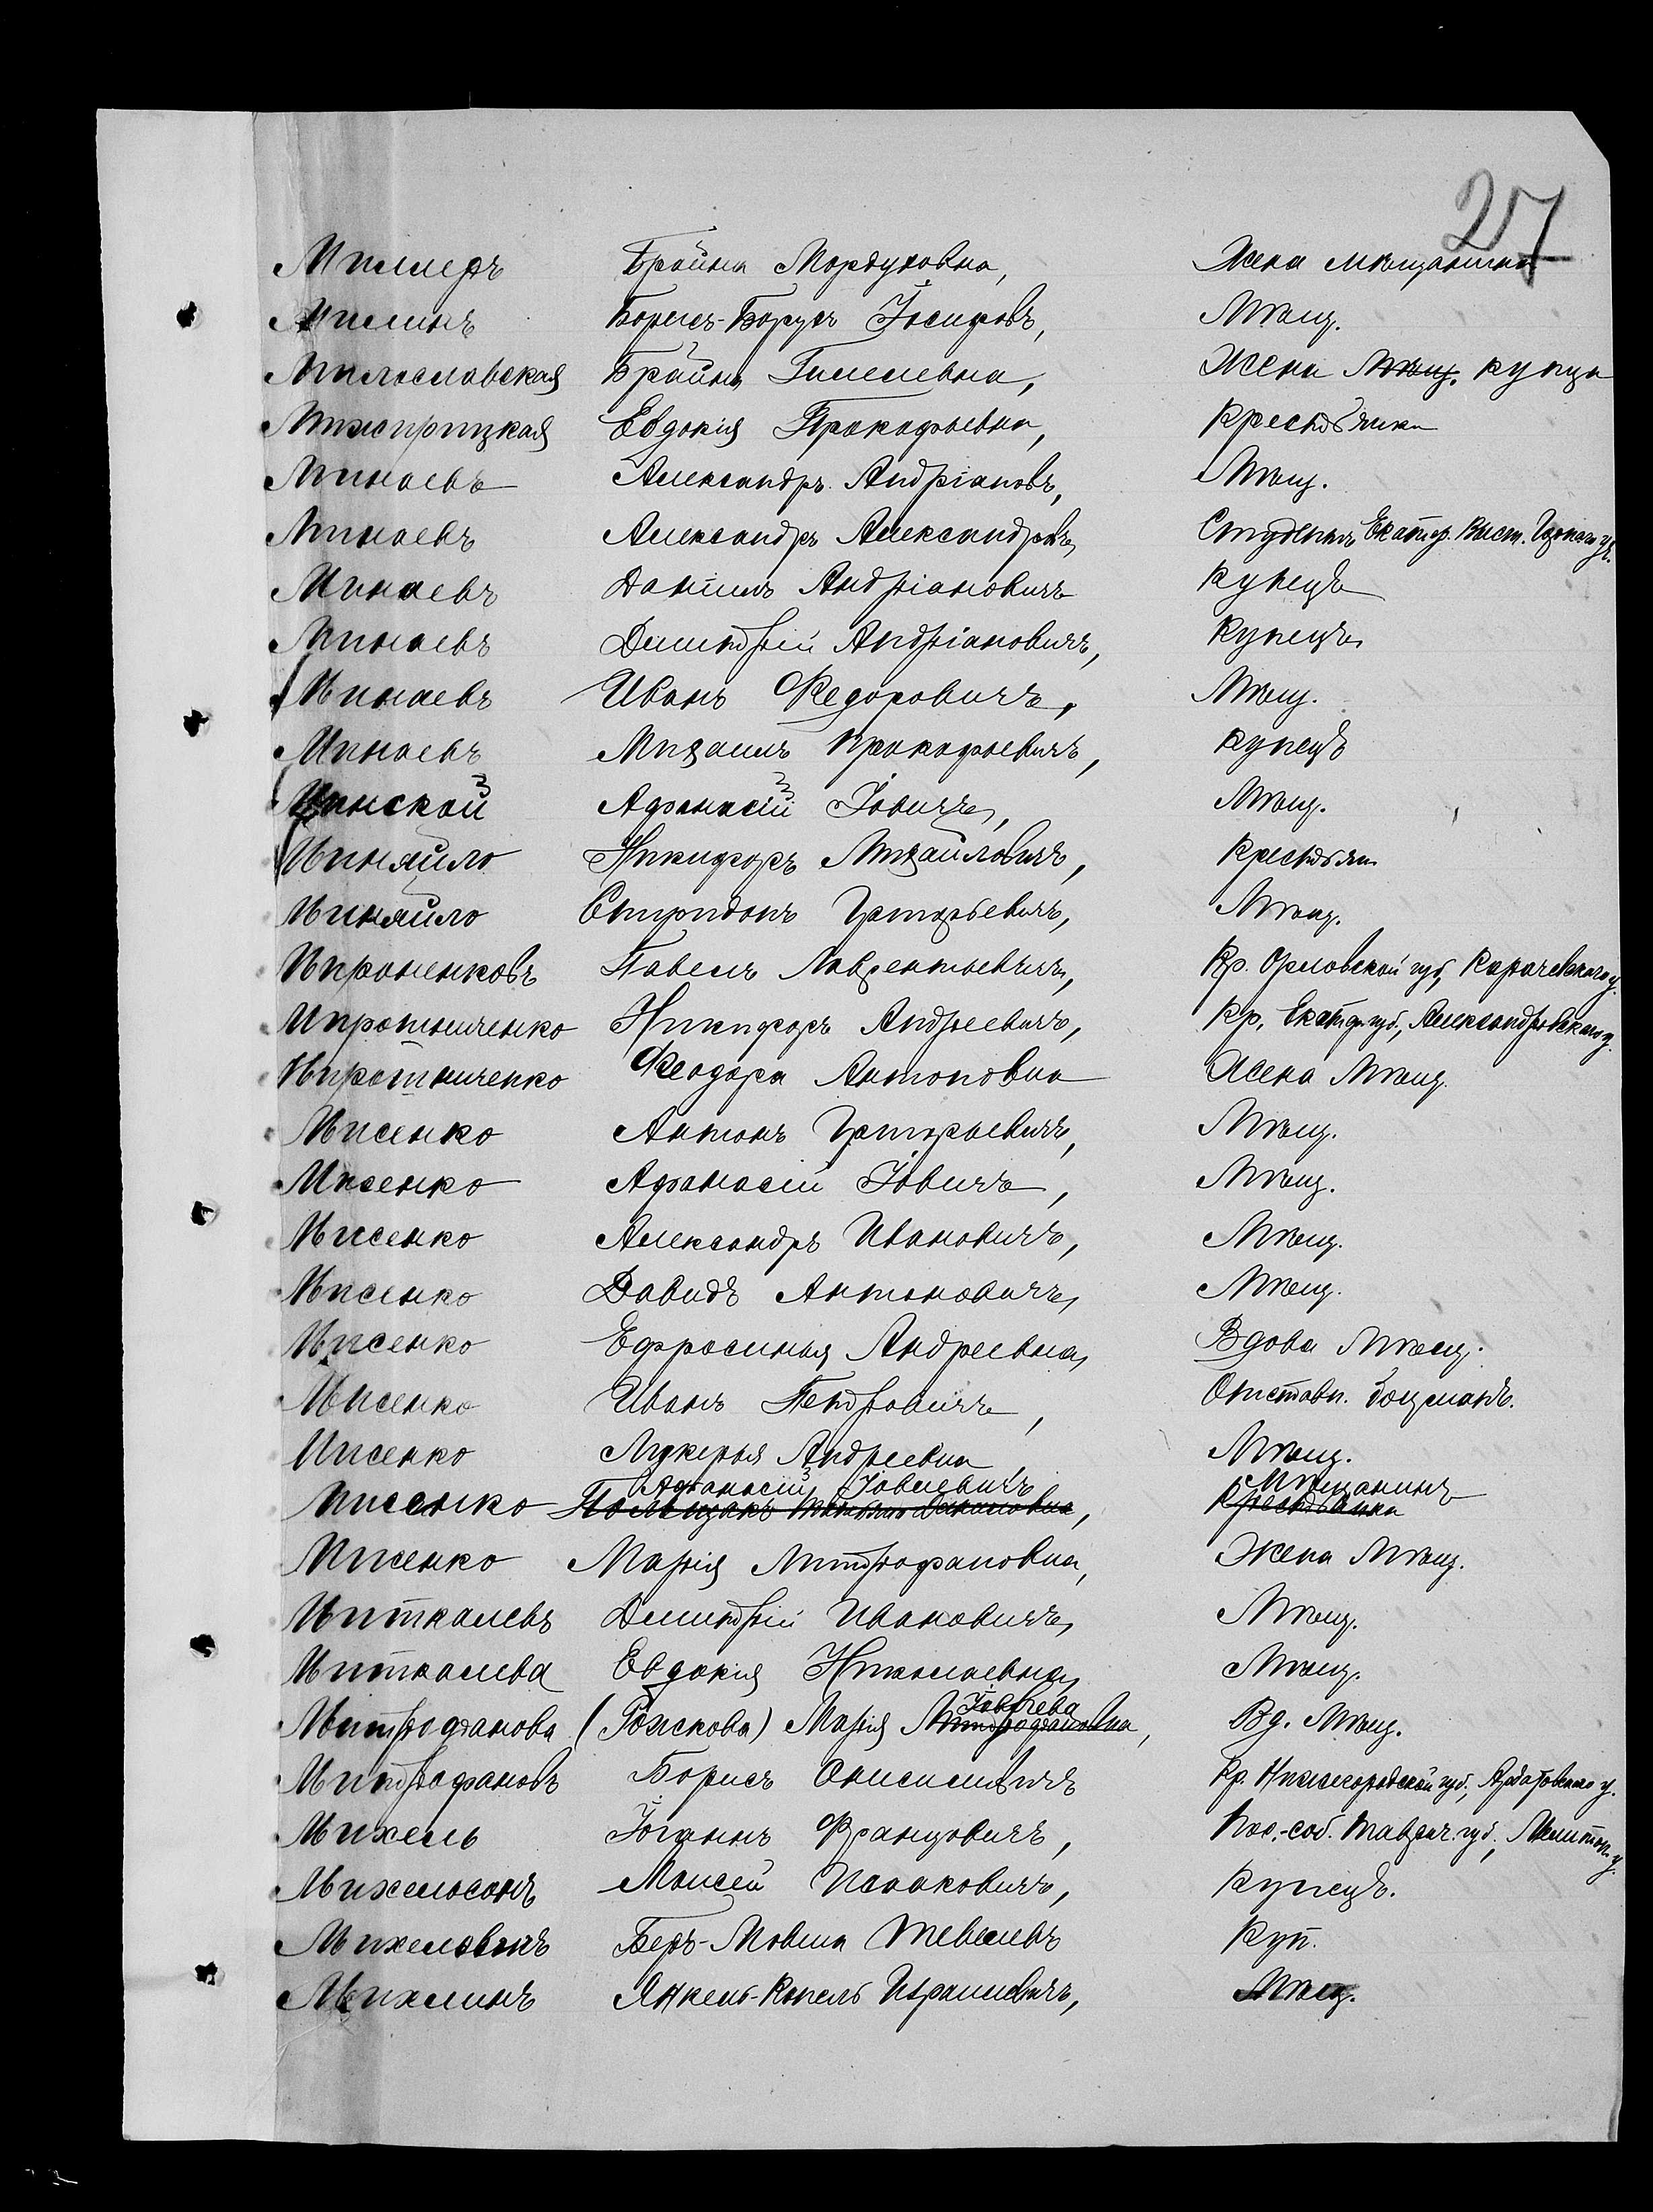 27
Миллеръ Брайна Мордуховна, Жена мѣщанина
Милинъ Борисъ-Борухъ Іосифовъ, Мѣщ.
Милославская Брайна Гилелевна, Жена Мѣщ. купца
Евдокія Прокофьевна, Крестьянка
Минаевъ Александръ Андріановъ, Мѣщ.
Минаевъ Александръ Александровъ, Студентъ Екатер. Высш. Горнаго уч.
Минаевъ Даніилъ Андріановичъ Купецъ
Минаевъ Димитрій Андріановичъ, Купецъ
Минаевъ Иванъ Ѳедоровичъ, Мѣщ.
Минаевъ Михаилъ Прокофьевичъ, Купецъ
Минской Афанасій Іовичъ, Мѣщ.
Миняйло Никифоръ Михайловичъ, Крестьян.
Миняйло Спиридонъ Григорьевичъ, Мѣщ.
Мироненковъ Павелъ Лаврентьевичъ, Кр. Орловской губ, Карачевскаго у.
Мирошниченко Никифоръ Андреевичъ, Кр. Екат. губ., Александровскаго у.
Мирошниченко Ѳеодора Антоновна Жена Мѣщ.
Мисенко Антонъ Григорьевичъ, Мѣщ.
Мисенко Афанасій Іовичъ, Мѣщ.
Мисенко Александръ Ивановичъ, Мѣщ.
Мисенко Давидъ Антоновичъ, Мѣщ.
Мисенко Ефросинья Андреевна, Вдова Мѣщ.
Мисенко Иванъ Петровичъ, Отставн. боцманъ.
Мисенко Лукерья Андреевна, Мѣщ.
Афанасій Іовлевичъ Мѣщанинъ
Мисенко Данииловна, Крестьянка
Мисенко Марія Митрофановна, Жена Мѣщ.
Миткалевъ Димитрій Ивановичъ, Мѣщ.
Миткалева Евдокія Николаевна, Мѣщ.
Іовлева
Митрофанова (Рожкова) Марія Митрофановна, Вд. Мѣщ.
Митрофановъ Борисъ Онисимовичъ Кр. Нижегородской губ., Ардатовскаго у.
Михель Іоганнъ Францовичъ, Пос.-соб. Таврич. губ., Мелитоп. у.
Михельсонъ Моисей Исааковичъ, Купецъ.
Беръ-Мовша Тевелевъ Куп.
Михлинъ Янкель-Копель Израилевичъ, Мѣщ.